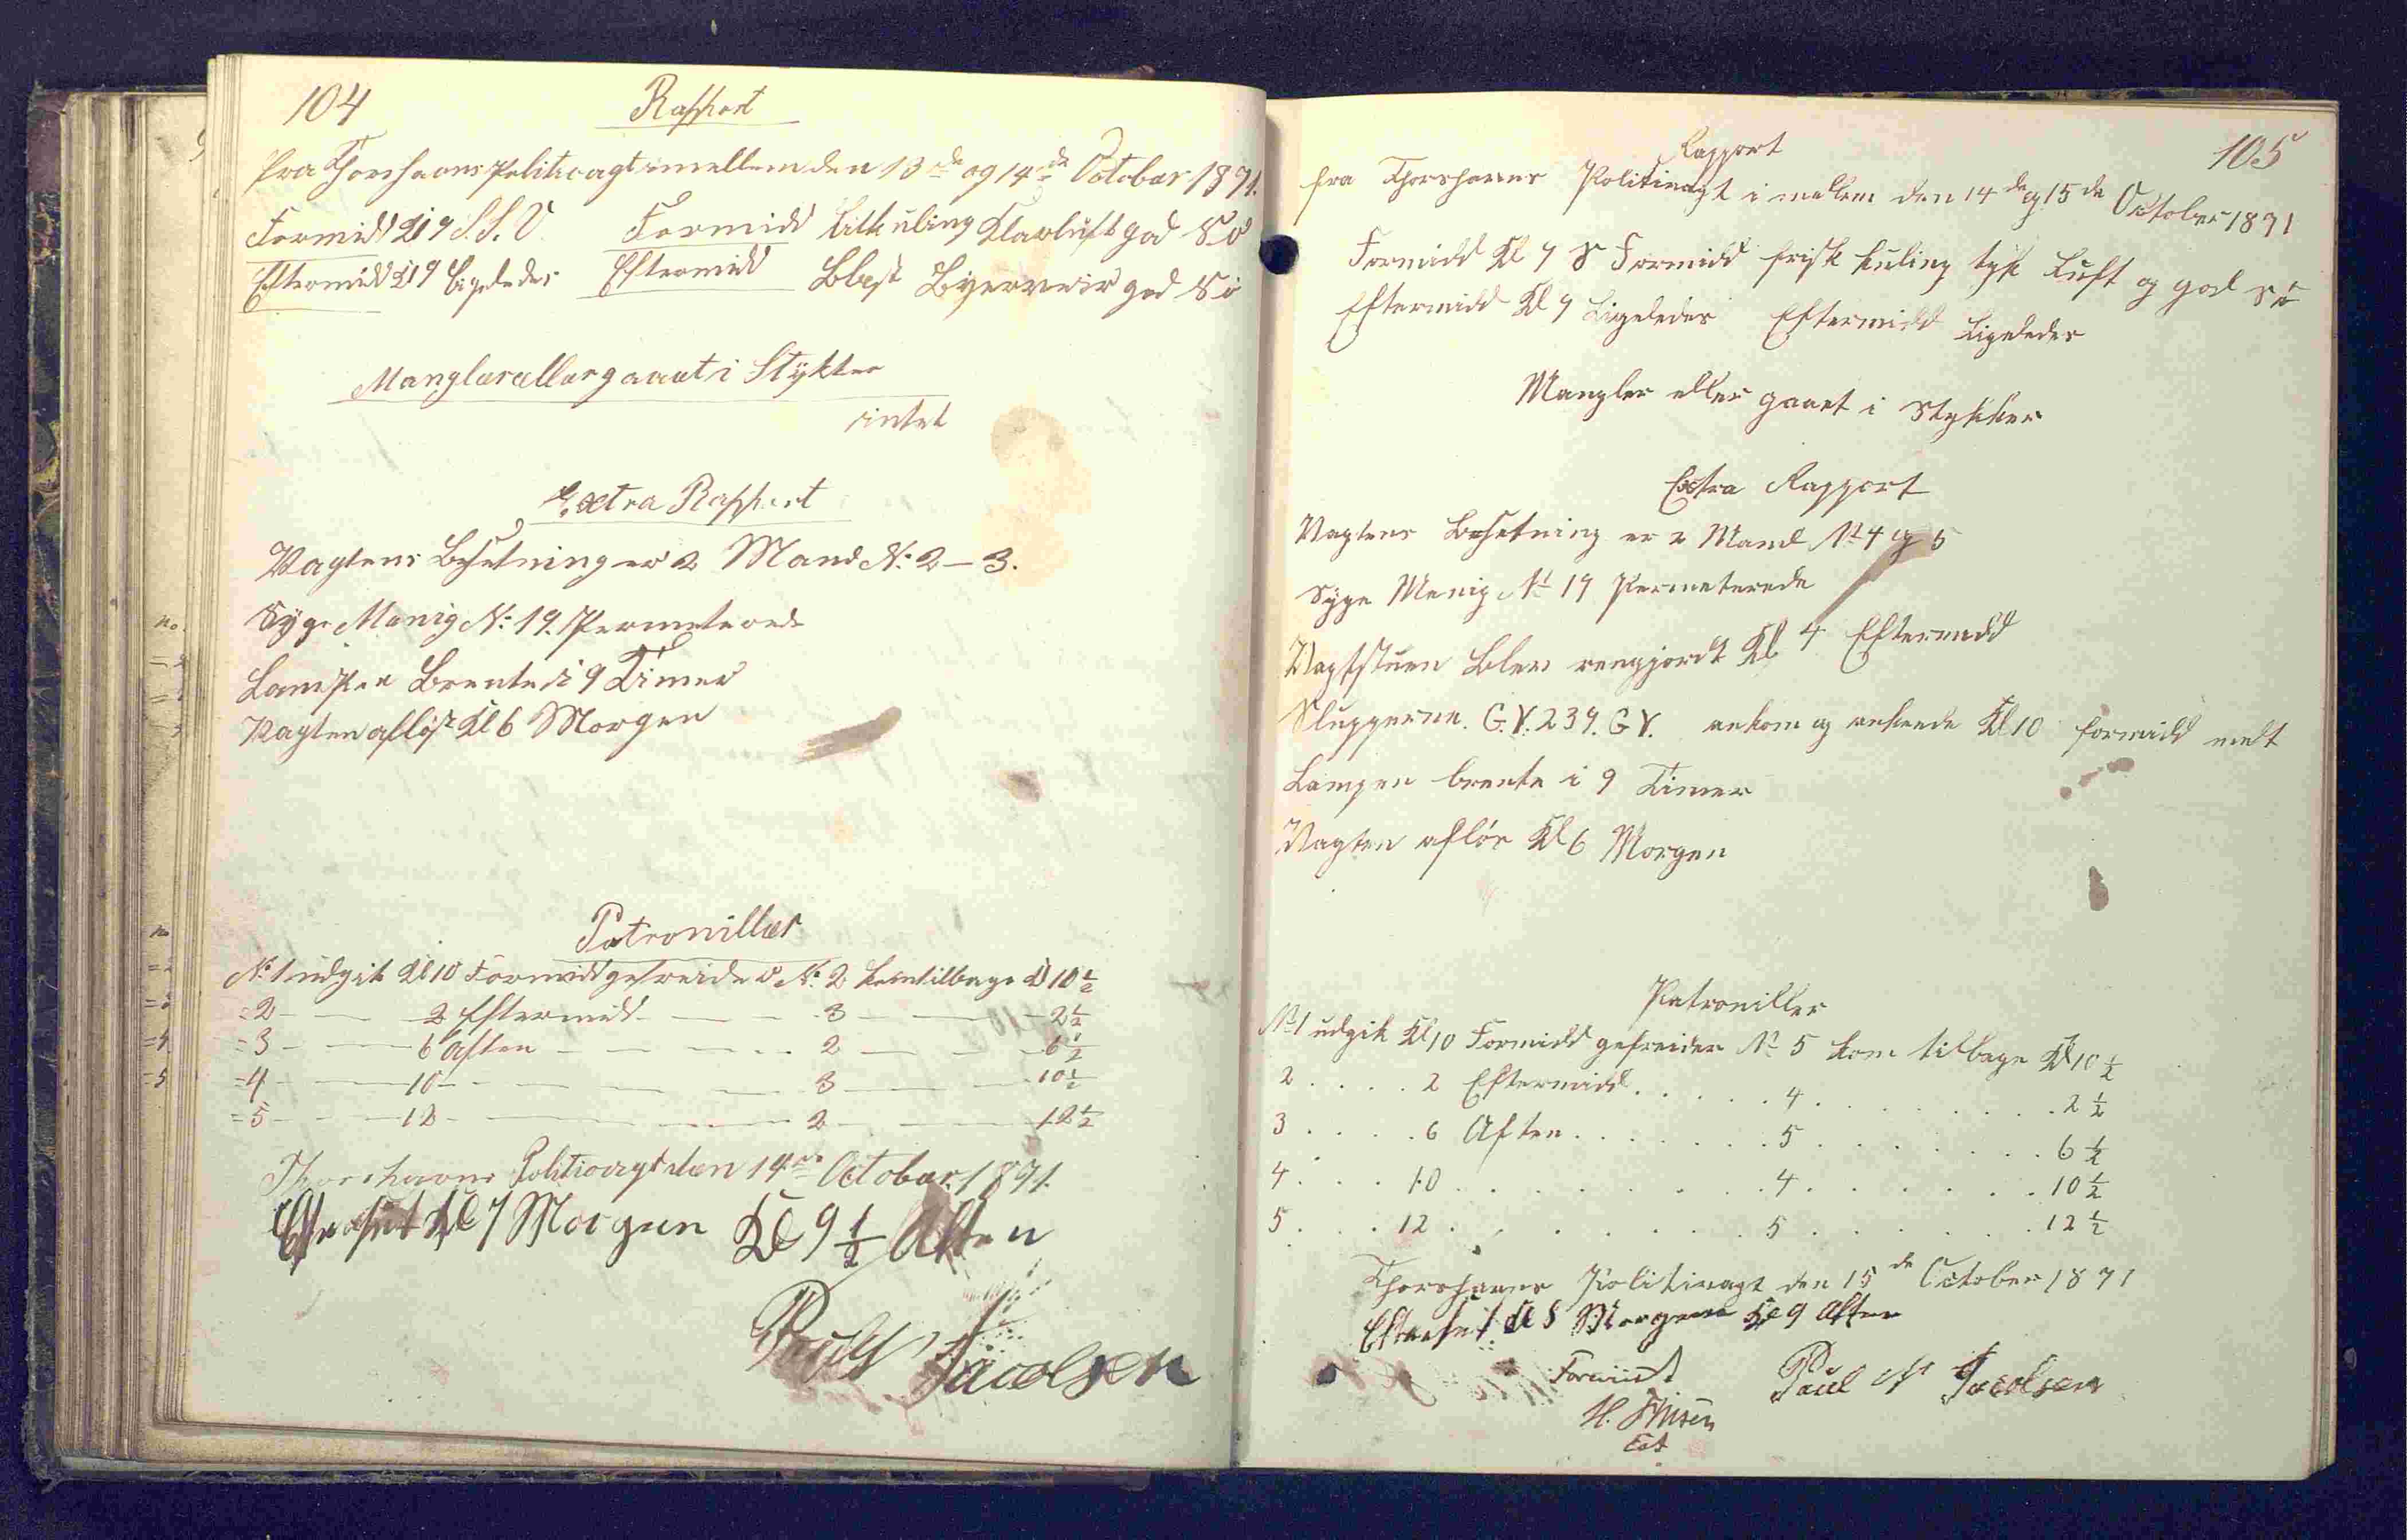 104
Rapport
fra Thorshavns Politivagt imellem den 13de og 14de October 1871.
Formidd Kl 9 S.S.V. Formidd Littkuling Klarluft god Sö
Eftermidd Kl 9 Ligeledes Eftermidd Byerveir god Sö
Mangler eller gaaet i Stykker
intet
Extra Rapport
Vagtens Besetning er 2 Mand No 2 – 3.
Syge Menig No 19. Permeterede
Lampen Brente i 9 Timer
Vagten aflöst Kl 6 Morgen
Patrouiller
No 1 udgik Kl 10 Formidd gefreider No 2 kom tilbage Kl 10 1/2
=2 — — 2 Eftermidd — — 3 — — 2 1/2
=3 — — 6 Aften — — 2 — — 6 1/2
=4 — — 10 — — 3 — — 10 1/2
=5 — — 12 — — 2 — — 12 1/2
Thorshavns Politivagt den 14de October 1871.
Efterseet Kl 7 Morgen Kl 9 1/2 Aften
Poul Jacobsen
105
Rapport
fra Thorshavns Politivagt i mellem den 14de og 15de October 1871
Formidd Kl 9 S Formidd frisk kuling tyk Luft og god Sö
Eftermidd Kl 9 Ligeledes Eftermidd Ligeledes
Mangler eller gaaet i Stykker
Extra Rapport
Vagtens Besetning er 2 Mand No 4 og 5
Syge Menig No 19 Permeterede
Vagtstuen blev rengjordt Kl 4 Eftermidd
Slupperne G.V. 239. G V. ankom og ankrede Kl 10 formidd
Lampen brente i 9 Timer
Vagten aflös Kl 6 Morgen
Patrouiller
No 1 udgik Kl 10 Formidd gefreider No 5 kom tilbage Kl 10 1/2
2 . . . . 2 Eftermidd . . . . . 4 . . . . . . . . 2 1/2
3 . . . . 6 Aften . . . . . . . 5 . . . . . . . . 6 1/2
4 . . . 10 . . . . . . . . 4 . . . . . . 10 1/2
5 . . . 12 . . . . . . . . 5 . . . . . . 12 1/2
Thorshavns Politivagt den 15de October 1871
Efterseet Kl 8 Morgen Kl 9 Aften
Poul Jacobsen
H.